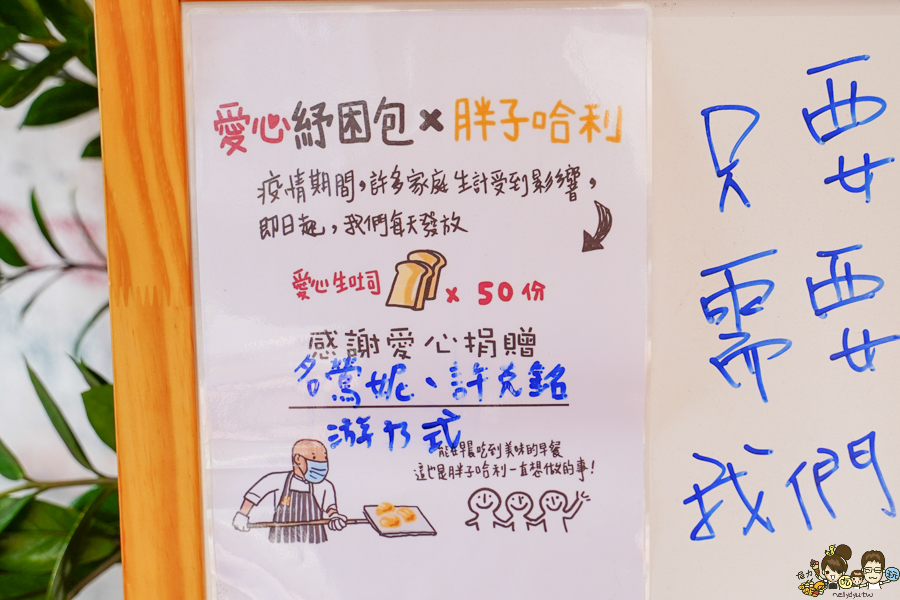 愛心紓困包×胖子哈利
疫情期間,許多家庭生計受到影響,
即日起,我們每天發放
愛心生吐司 x 50 份
感謝愛心捐贈
鶯妮、許克銘
游乃式
吃到美味的早餐
這也是胖子哈利一直想做的事!
要
女
只要
需要
我們
nellydyu.tw